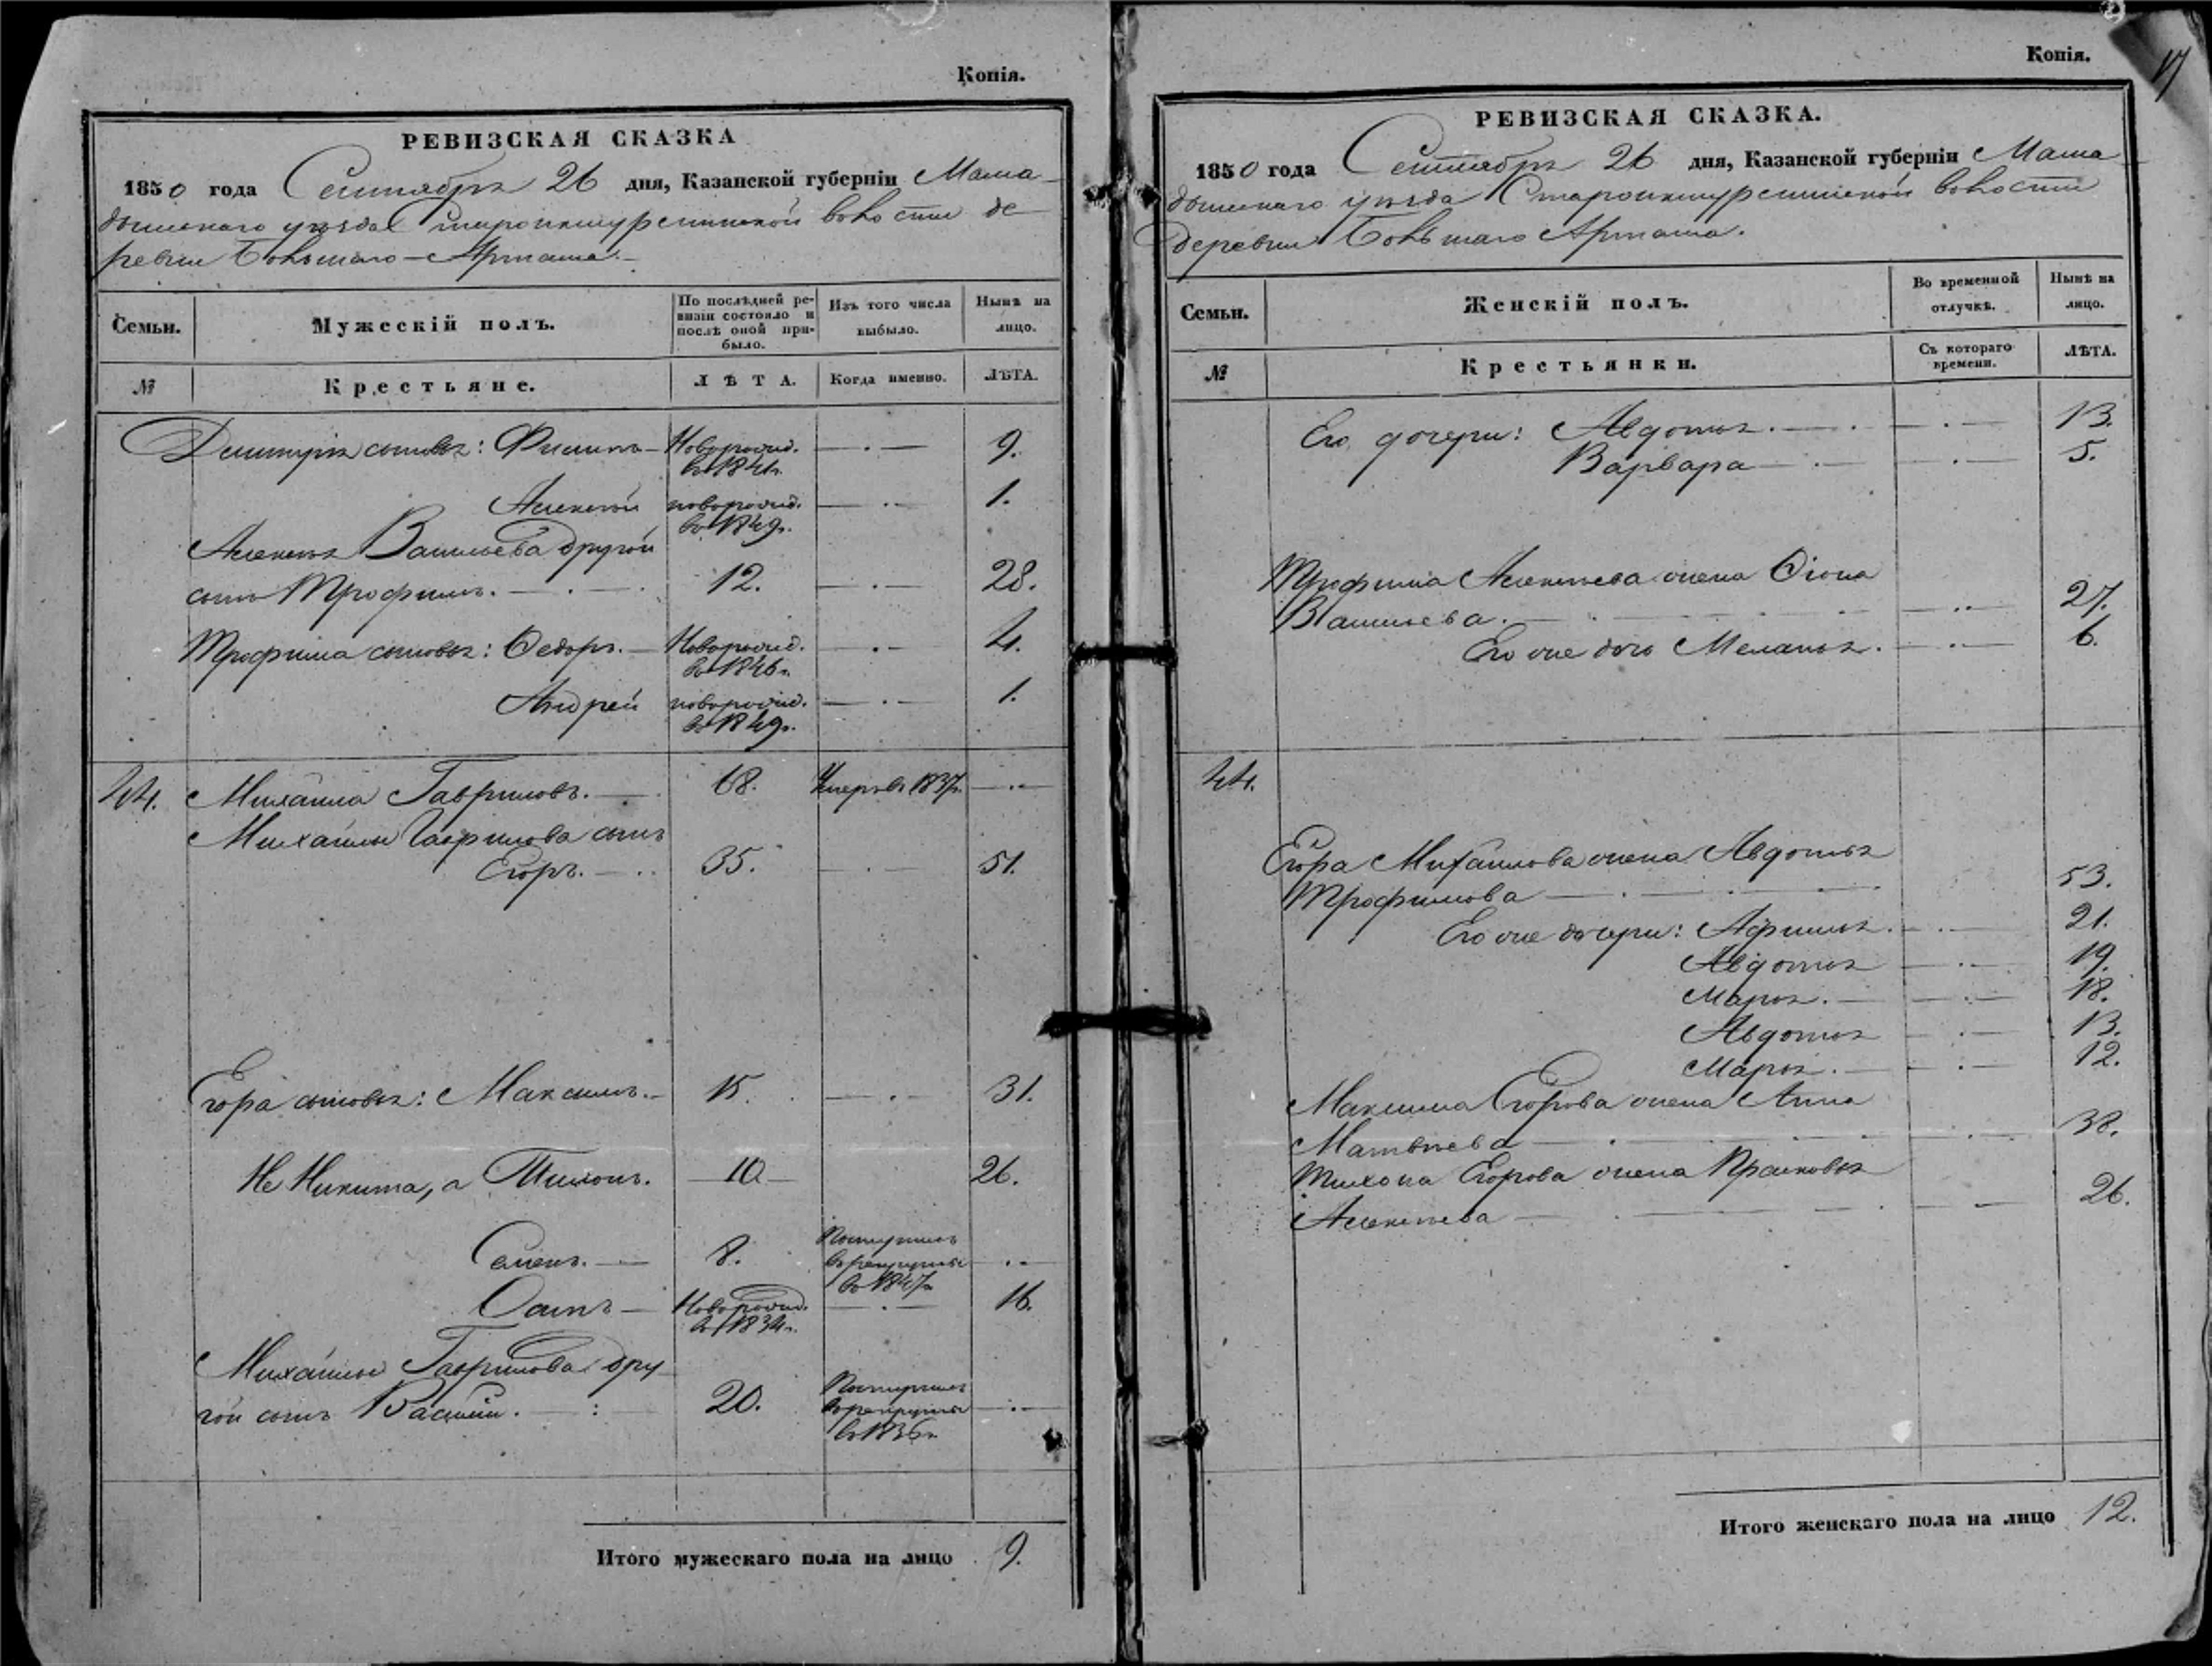 Копія.
РЕВИЗСКАЯ СКАЗКА
1850 года Сентября 26 дня, Казанской губерніи Мама-
дышскаго уѣзда Староикшурминской волости де-
ревни Большаго-Арташа.
Семьи.
Мужескій полъ.
По послѣдней ре-
визіи состояло и
послѣ оной при-
было.
Изъ того числа
выбыло.
Нынѣ на
лицо.
№
Крестьяне.
ЛѢТА.
Когда именно.
ЛѢТА.
Дмитрія сыновья: Филипъ Новорожд. 9.
въ 1841 г.
Алексѣй новорожд. 1.
въ 1849 г.
Алексѣя Васильева другой
сынъ Трофимъ. 12. 28.
Трофима сыновья: Ѳедоръ. Новорожд. 4.
въ 1846 г.
Андрей новорожд. 1.
въ 1849 г.
44. Михайла Гавриловъ. 68. Умеръ въ 1837 г.
Михайлы Гаврилова сынъ
Егоръ. 35. 51.
Егора сыновья: Максимъ. 15. 31.
Не Никита, а Тихонъ. 10 26.
Семенъ. 8. Поступилъ
въ рекруты
въ 1847 г.
Осипъ Новорожд. 16.
въ 1834 г.
Михайлы Гаврилова дру-
гой сынъ Василій. 20. Поступилъ
въ рекруты
въ 1836 г.
Итого мужескаго пола на лицо 9.
Копія.
17
РЕВИЗСКАЯ СКАЗКА.
1850 года Сентября 26 дня, Казанской губерніи Мама-
дышскаго уѣзда Староикшурминской волости
деревни Большаго Арташа.
Семьи.
Женскій полъ.
Во временной
отлучкѣ.
Нынѣ на
лицо.
№
Крестьянки.
Съ котораго
времени.
ЛѢТА.
Его дочери: Авдотья. 13.
Варвара 5.
Трофима Алексѣева жена Ѳіона
Васильева. 27.
Его же дочь Меланья. 6.
44.
Егора Михайлова жена Авдотья
Трофимова 53.
Его же дочери: Афимья. 21.
Авдотья 19.
Марья. 18.
Авдотья 13.
Марья. 12.
Максима Егорова жена Анна
Матвѣева 38.
Тихона Егорова жена Прасковья
Алексѣева 26.
Итого женскаго пола на лицо 12.